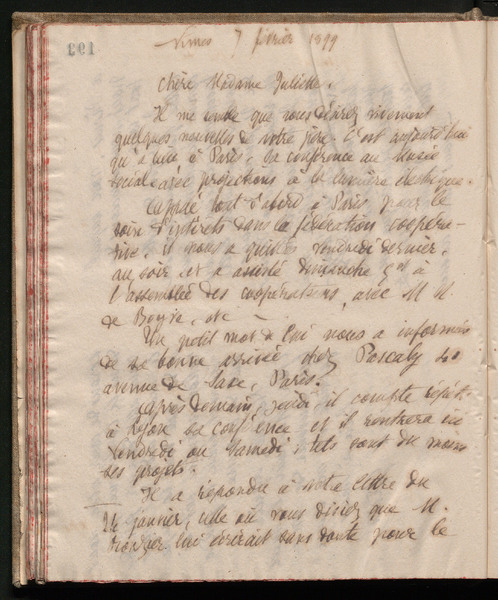 193
Nimes 7 février 1899
Chère Madame Juliette,
Il me semble que vous désirez vivement
quelques nouvelles de votre père. C'est aujourd'hui
qu'a lieu à Paris, sa conférence au Musée
social avec projections à la lumière électrique.
Appelé tout d'abord à Paris pour le
soin d'intérêts dans la fédération coopéra-
tive, il nous a quittés vendredi dernier,
au soir et a assisté dimanche à
l'assemblée des coopérateurs, avec M. M.
de Boyve, etc —
Un petit mot de lui nous a informés
de sa bonne arrivée chez Pascaly 40
avenue de Saxe, Paris.
Après demain, jeudi, il compte répéter
à Lyon sa conférence et il rentrera ici
Vendredi ou Samedi, tels sont du moins
ses projets.
Il a répondu à votre lettre du
janvier, celle où vous disiez que M.
lui écrirait sans doute pour le